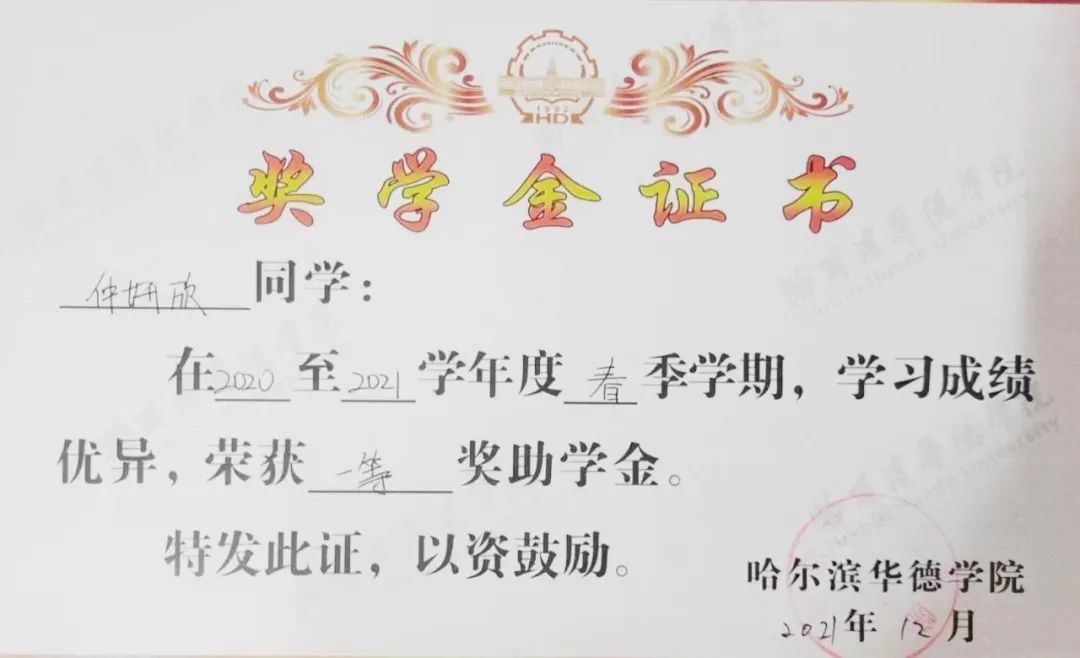 1992
HD
奖学金证书
仲妍欣同学：
在2020至2021学年度春季学期，学习成绩
优异，荣获一等奖助学金。
特发此证，以资鼓励。
哈尔滨华德学院
2021年12月